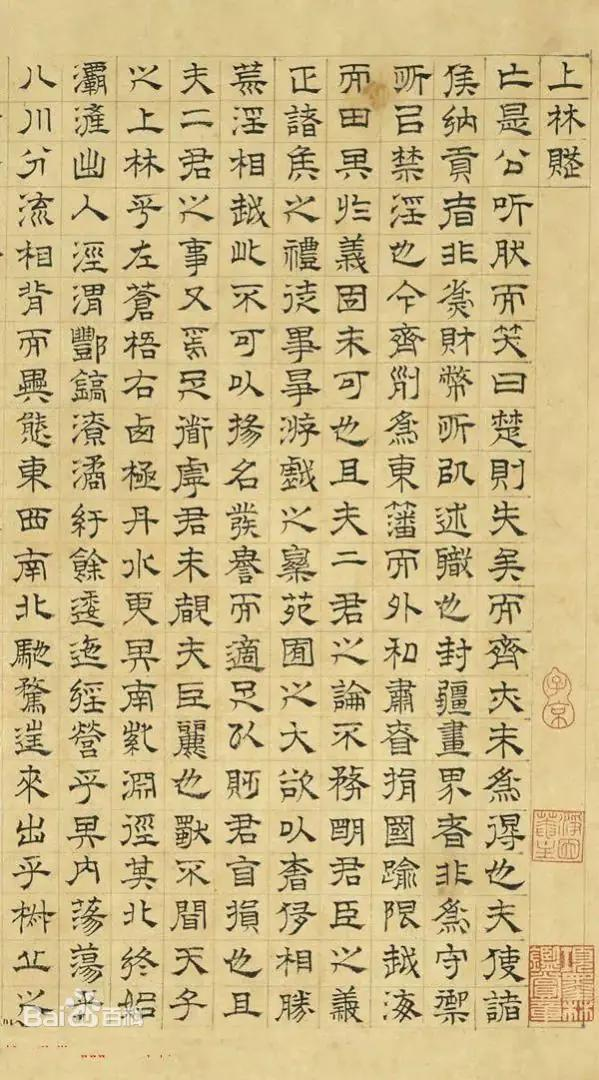 上林賦
亡是公听肰而笑曰楚則失矣而齊亦未為得也夫使諸
侯納貢者非為財幣所以述職也封疆畫界者非為守禦
所以禁淫也今齊列為東藩而外私肅眘捐國踰限越海
而田其於義固未可也且夫二君之論不務明君臣之義
正諸侯之禮徒事爭游戲之樂苑囿之大欲以奢侈相勝
荒淫相越此不可以揚名發譽而適足以貶君自損也且
夫二君之事又焉足道虖君未覩夫巨麗也獨不聞天子
之上林乎左蒼梧右西極丹水更其南紫淵徑其北終始
灞滻出入涇渭酆鎬潦潏紆餘逶迤經營乎其內蕩蕩乎
八川分流相背而異態東西南北馳騖往來出乎椒丘之
子京
Baidu百科